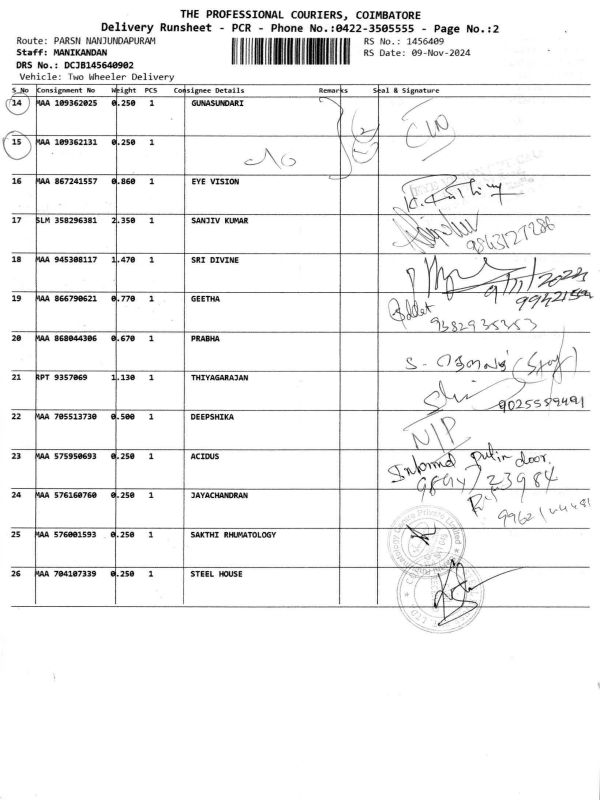 THE PROFESSIONAL COURIERS, COIMBATORE
Delivery Runsheet - PCR - Phone No.:0422-3505555 - Page No.:2
Route: PARSN NANJUNDAPURAM RS No.: 1456409
Staff: MANIKANDAN RS Date: 09-Nov-2024
DRS No.: DCJB145640902
Vehicle: Two Wheeler Delivery
S_No Consignment No Weight PCS Consignee Details Remarks Seal & Signature
14 MAA 109362025 0.250 1 GUNASUNDARI
15 MAA 109362131 0.250 1
16 MAA 867241557 0.860 1 EYE VISION
17 SLM 358296381 2.350 1 SANJIV KUMAR
9843127286
18 MAA 945308117 1.470 1 SRI DIVINE
9/11/2024
19 MAA 866790621 0.770 1 GEETHA
9382935353
20 MAA 868044306 0.670 1 PRABHA
21 RPT 9357069 1.130 1 THIYAGARAJAN
9025559491
22 MAA 705513730 0.500 1 DEEPSHIKA
N/P
23 MAA 575950693 0.250 1 ACIDUS
Informed putin door.
24 MAA 576160760 0.250 1 JAYACHANDRAN
25 MAA 576001593 0.250 1 SAKTHI RHUMATOLOGY
26 MAA 704107339 0.250 1 STEEL HOUSE